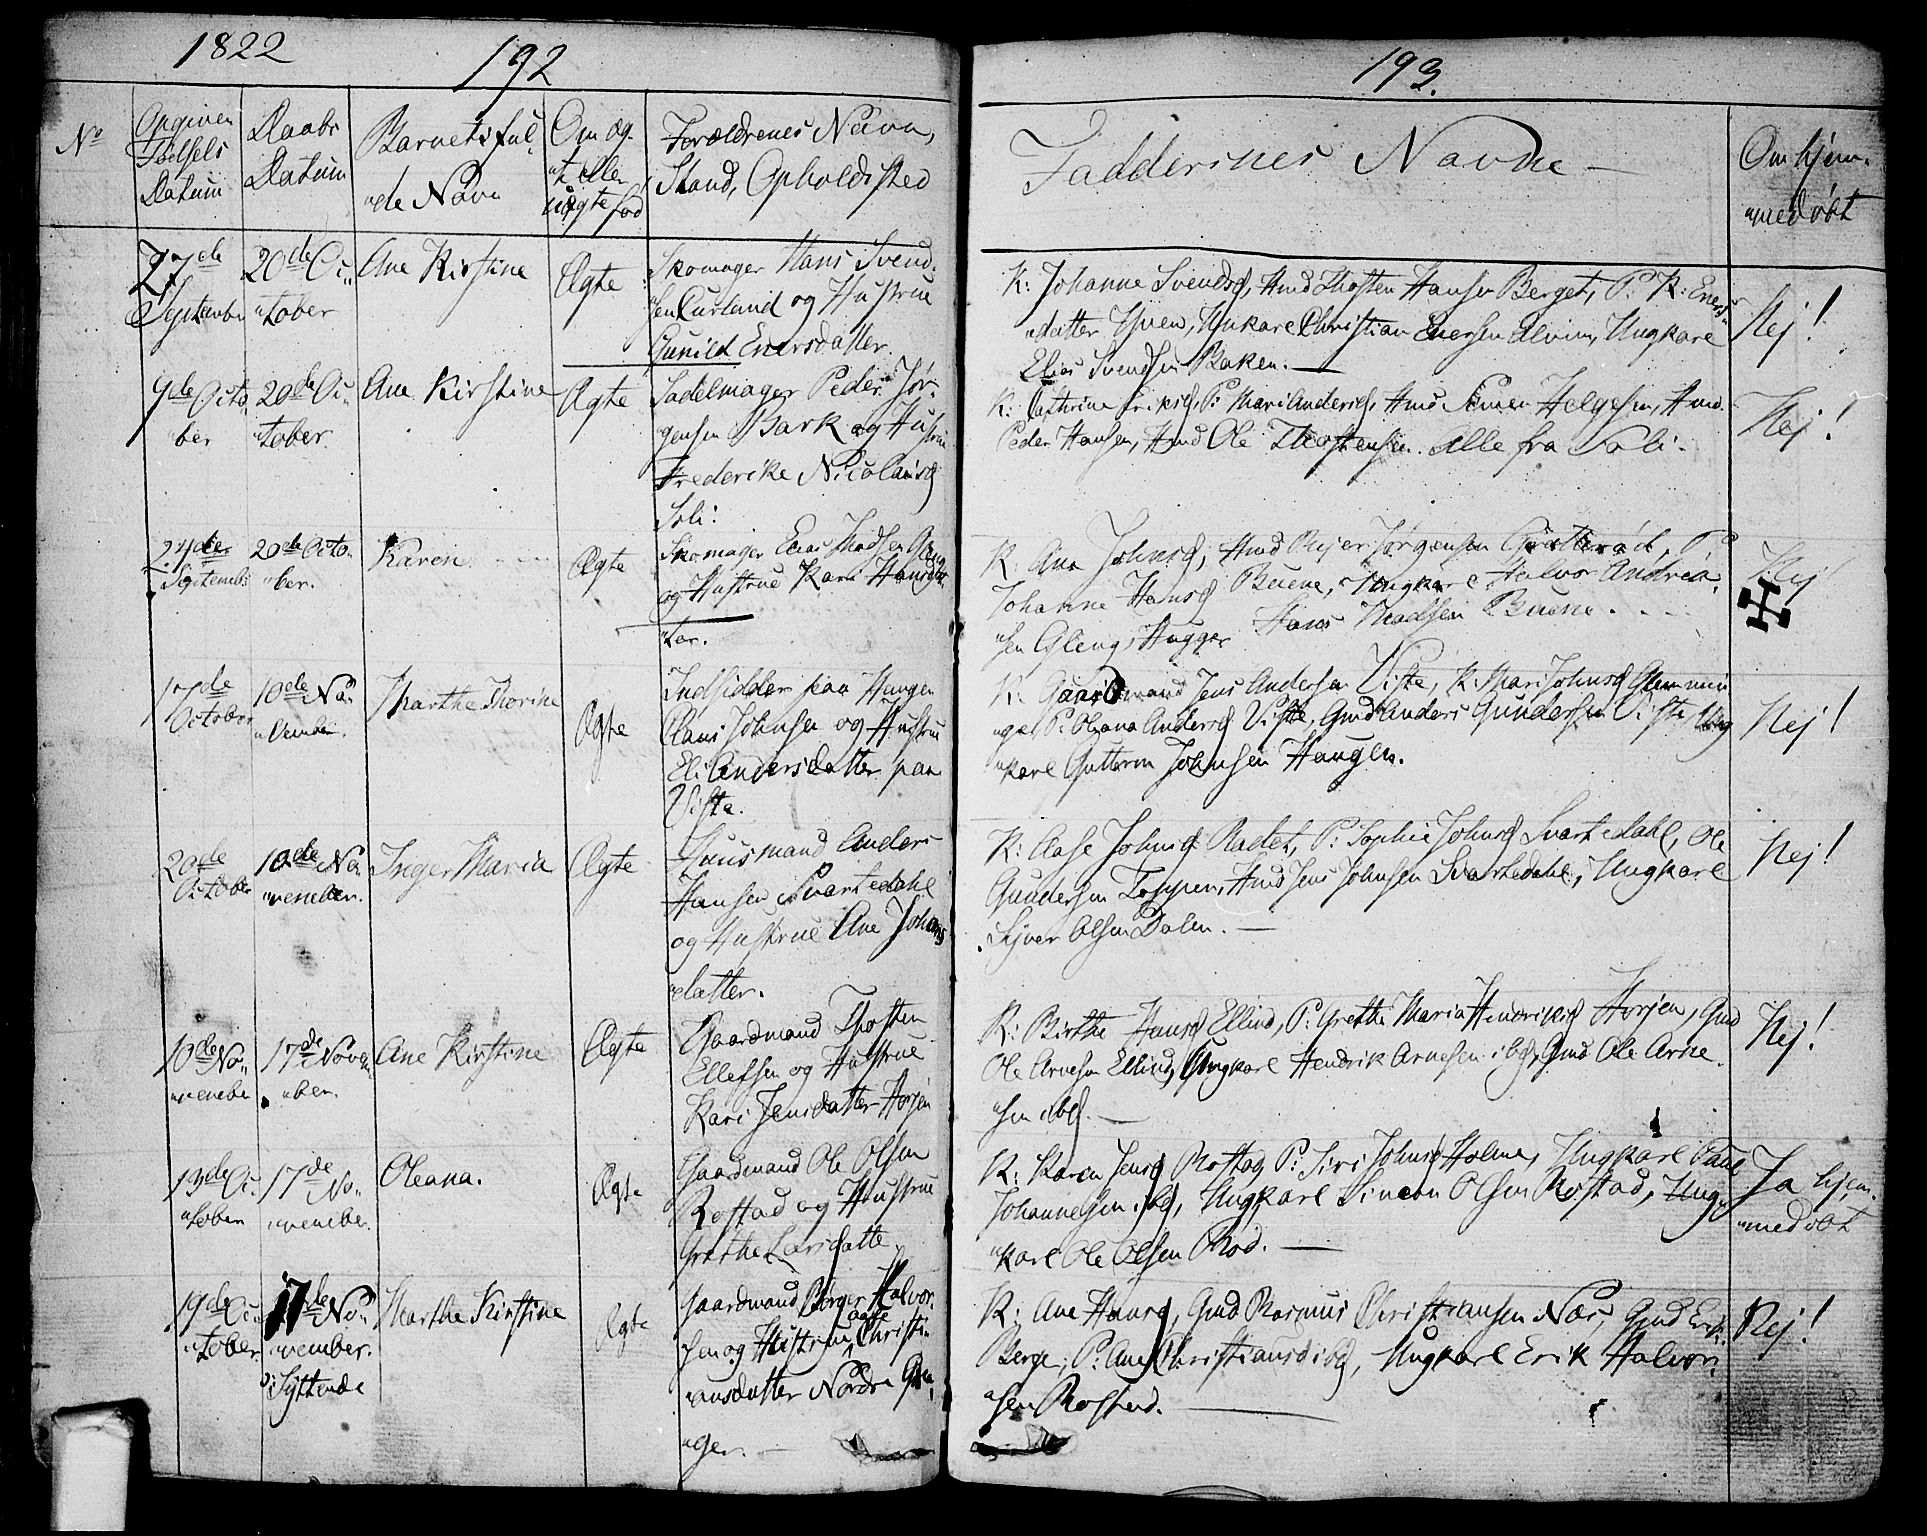 1822
192
No
Opgiven
Fødsels
Datum
Daabs
Datum
Barnets ful-
"de Navn
Om æg-
"te eller
uægte fød
Forældrenes Navn,
Stand, Opholdssted
27de
September
20de Oc-
"tober
Ane Kirstine
Ægte
Skomager Hans Svend-
sen Curland og Hustrue
Gunild Enersdatter.
9de Octo-
ber
20de Oc-
"tober.
Ane Kirstine
Ægte
Sadelmager Peder Jør-
"gensen Bark og Hustrue
Frederike Nicolaisd
Soli.
24de
Septemb:
20de Octo-
"ber.
Karen.
Ægte
Skomager Enas Madsen
og Hustrue Karn Hansdat-
"ter.
17de
October
10de No-
"vember.
Marthe Thorine
Ægte
Indsidder paa Haugen
Claus Johnsen og Hustrue
Eli Andersdatter paa
Viste.
20de
October
10de No-
"vember.
Inger Maria
Ægte
Huusmand Anders
Hansen Svartedahl
og Hustrue Ane Johans
"datter.
10de No-
"vember
17de Novem
"ber.
Ane Kirstine
Ægte
Gaardmand Thosten
Ellefsen og Hustrue
Kari Jensdatter Horjen
13de Oc-
"tober
17de No-
"vember.
Oleana.
Ægte
Gaardmand Ole Olsen
Rostad og Hustrue
Grethe Larsdatte
19de Oc-
"tober
17de No-
"vember.
Syttende
Marthe Kirstine
Ægte
Gaardmand Børger Halvor-
sen og Hustrue Christi-
"ansdatter Nordre
"ger.
193.
Faddernes Navne —
Om hjem-
"medøbt
K: Johanne Svendsd, Hmd Thosten Hansen Berget, P: K: Eners-
"datter Hven, Unkarl Christian Enersen Alvim, Ungkarl
Elias Svendsen Bakken. —
Nej!
K: Cathrine Eriksd, P: Mari Andersd, Hmd Simen Helgesen, Hmd.
Peder Hansen, Hmd Ole Thostensen. Alle fra Soli.
Nej!
K. Ana Johnsd, Hmd Rejer Jørgensen, P:
Johanne Hansd Buene, Ungkarl Halvor Andrea-
sen Gleng, Hugger Hans Madsen Buene.
Nej!
K. Gaardmand Jens Andersen Viste, K. Mari Johnsd Glemmin-
"ge, P: Oleana Andersd Viste, Gmd Anders Gundersen Viste, Ung
"karl Guttorm Johnsen Haugen.
Nej!
K: Aase Johnsd Radet, P: Sophie Johnsd Svartedahl, Ole
Gundersen Toppen, Hmd Jens Johnsen Svartedahl, Ungkarl
Sjver Olsen Dalen. —
Nej!
K: Birthe Hansd Ellind, P: Grethe Maria Hendriksd Horjen, Gmd
Ole Arnesen Ellind, Ungkarl Hendrik Arnesen ibd, Gmd Ole Arne-
"sen ibd. —
Nej!
K: Karen Jensd Rostad, P: Siri Johnsd Holme, Ungkarl Paul
Johannesen ibd, Ungkarl Simeon Olsen Rostad, Ung-
"karl Ole Olsen Rød. —
Ja hjem-
"medøbt
K: Ane Hansd, Gmd Rasmus Christiansen Næs, Gmd Erik
Berge, P: Ane Christiansd ibd, Ungkarl Erik Halvor-
"sen Rostad. —
Nej!